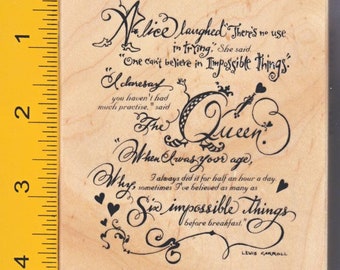 Alice laughed "There's no use
in trying," She said
"One can't believe in Impossible Things"
"I daresay
you haven't had
much practise," said
The Queen.
"When I was your age,
I always did it for half an hour a day.
Why, sometimes I've believed as many as
Six impossible Things
before breakfast."
LEWIS CARROLL
1
2
3
4